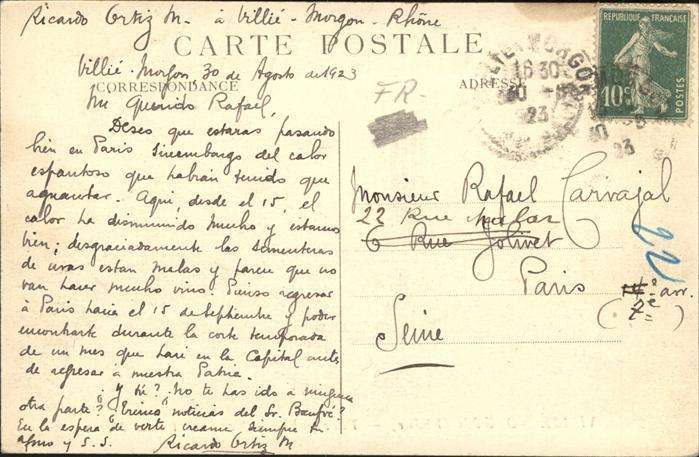 Ricardo Ortiz M. à Villié-Morgon-Rhône
CARTE POSTALE
Villié-Morgon 30 de Agosto de 1923
CORRESPONDANCE
ADRESSE
Mi Querido Rafael,
Deseo que estaras pasando
bien en Paris sinembargo del calor
espantoso que habian tenido que
aguantar. Aqui, desde el 15, el
calor ha disminuido mucho y estamos
bien; desgraciadamente las sementeras
de uvas estan malas y parece que no
van hacer mucho vino. Pienso regresar
à Paris hacia el 15 de Septiembre y poder
encontrarte durante la corta temporada
de un mes que haré en la Capital antes
de regresar à nuestra Patria.
Y tú? No te has ido a ninguna
otra parte? noticias del Sr.
En la espera de verte, creame siempre tu
afmo y S.S. Ricardo Ortiz M
FR-
REPUBLIQUE FRANÇAISE
10c
POSTES
MORGON
16 30
30
23
30
23
Monsieur Rafael Carvajal
22 Rue Malar
6 Rue Jolivet
Paris
22
(7e arr.)
Seine